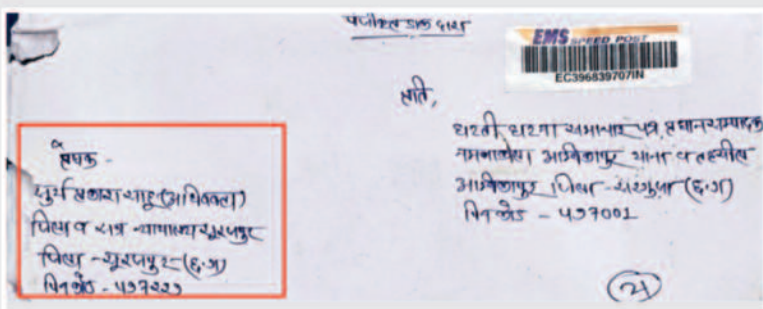 पंजीकृत डाक द्वारा
EMS SPEED POST
EC396839707IN
प्रति,
घटती घटना समाचार पत्र, प्रधान सम्पादक
नमनाकला अम्बिकापुर थाना व तहसील
अम्बिकापुर जिला - सरगुजा (छ.ग)
पिन कोड - 497001
प्रेषक -
सूर्य प्रकाश साहू (अधिवक्ता)
जिला व सत्र न्यायालय सूरजपुर
जिला - सूरजपुर (छ.ग)
पिन कोड - 497229